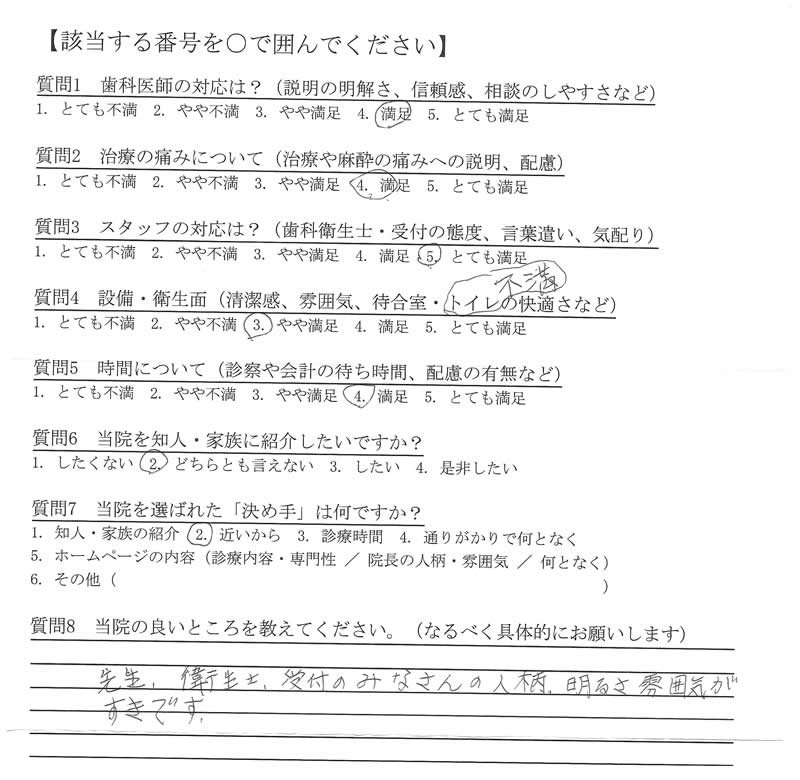 【該当する番号を○で囲んでください】
質問1 歯科医師の対応は？（説明の明解さ、信頼感、相談のしやすさなど）
1. とても不満 2. やや不満 3. やや満足 4. 満足 5. とても満足
質問2 治療の痛みについて（治療や麻酔の痛みへの説明、配慮）
1. とても不満 2. やや不満 3. やや満足 4. 満足 5. とても満足
質問3 スタッフの対応は？（歯科衛生士・受付の態度、言葉遣い、気配り）
1. とても不満 2. やや不満 3. やや満足 4. 満足 5. とても満足
不満
質問4 設備・衛生面（清潔感、雰囲気、待合室・トイレの快適さなど）
1. とても不満 2. やや不満 3. やや満足 4. 満足 5. とても満足
質問5 時間について（診察や会計の待ち時間、配慮の有無など）
1. とても不満 2. やや不満 3. やや満足 4. 満足 5. とても満足
質問6 当院を知人・家族に紹介したいですか？
1. したくない 2. どちらとも言えない 3. したい 4. 是非したい
質問7 当院を選ばれた「決め手」は何ですか？
1. 知人・家族の紹介 2. 近いから 3. 診療時間 4. 通りがかりで何となく
5. ホームページの内容（診療内容・専門性 ／ 院長の人柄・雰囲気 ／ 何となく）
6. その他（ ）
質問8 当院の良いところを教えてください。（なるべく具体的にお願いします）
先生、衛生士、受付のみなさんの人柄、明るさ雰囲気が
すきです。